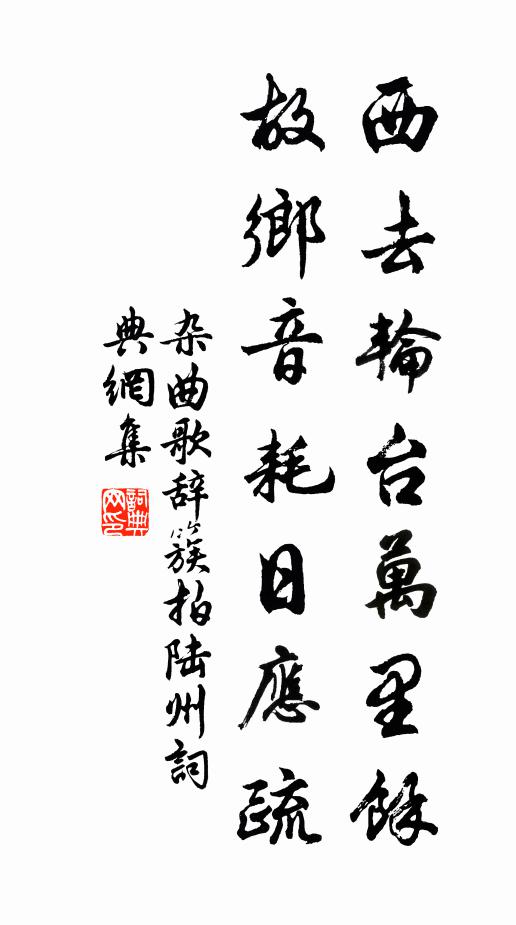 西去輪台萬里餘
故鄉音耗日應疏
杂曲歌辞簇拍陆州詞
典網集
詞典网印